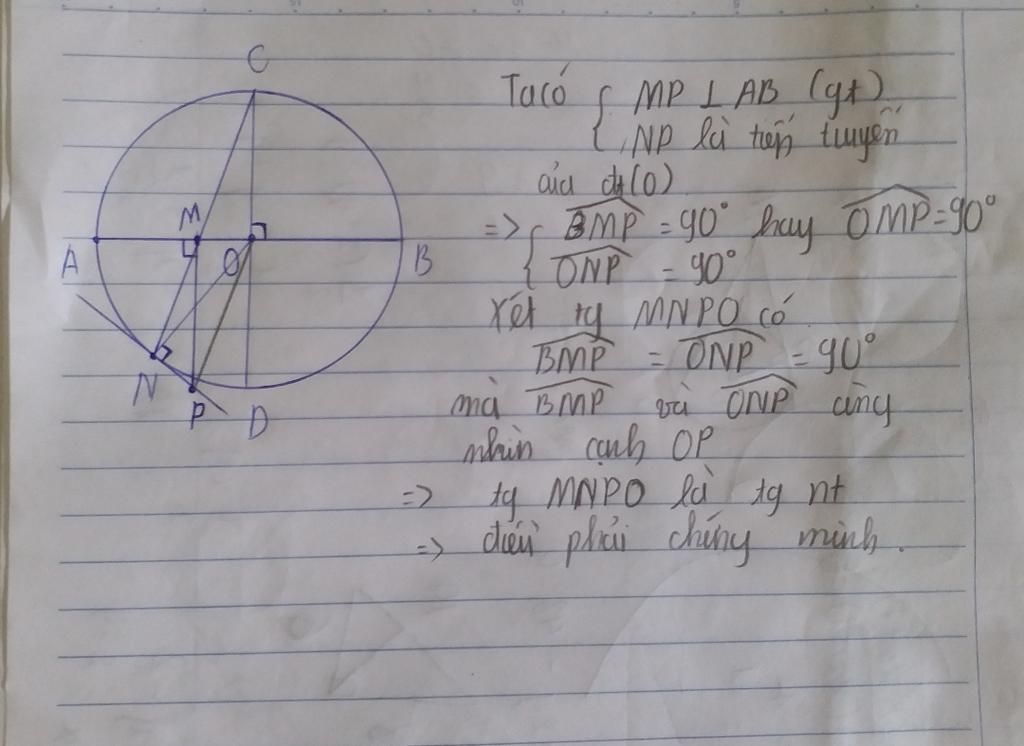 C
M
A
O
B
N
P
D
Ta có { MP ⊥ AB (gt)
NP là tiếp tuyến
của đt(O)
=> { BMP = 90° hay OMP = 90°
ONP = 90°
Xét tg MNPO có
BMP = ONP = 90°
mà BMP và ONP cùng
nhìn cạnh OP
=> tg MNPO là tg nt
=> điều phải chứng minh.